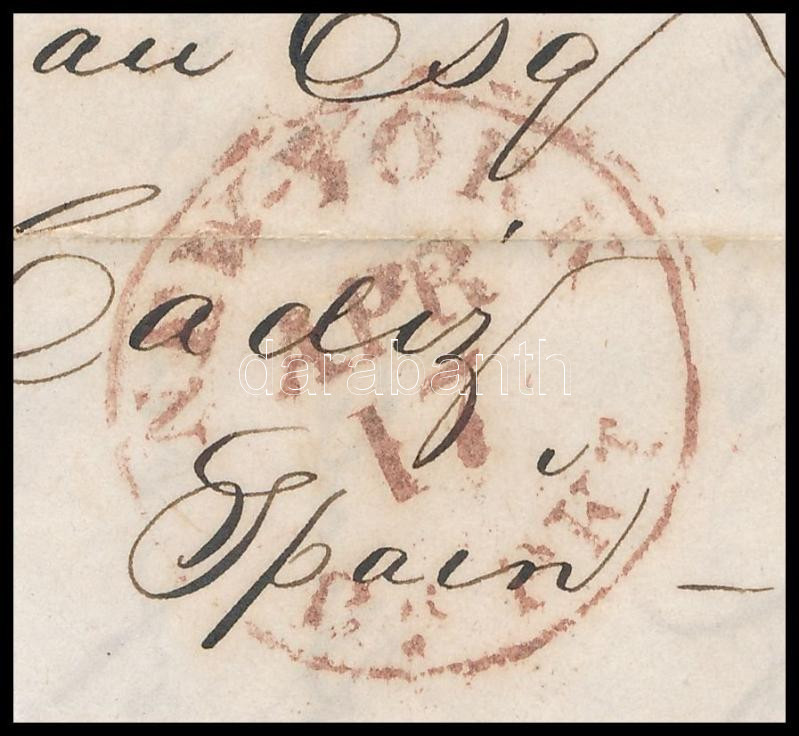 au Esq
Cadiz
Spain
NEW-YORK
APR
17
BR. PKT.
darabanth